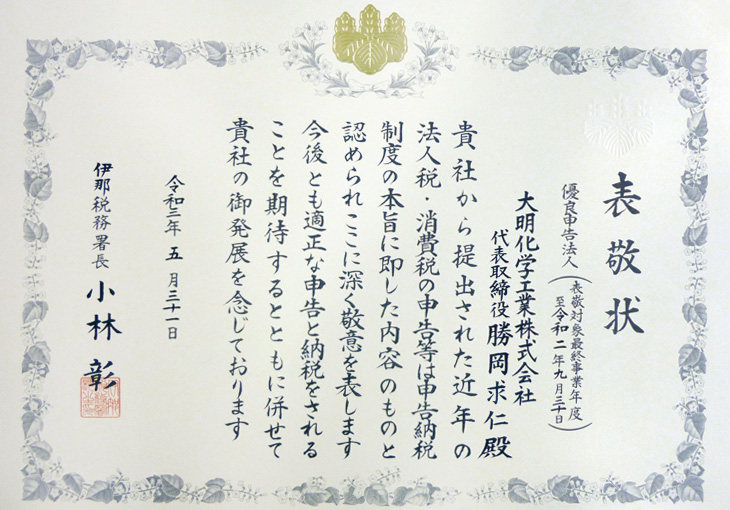 表敬状
優良申告法人
(表敬対象最終事業年度
至令和二年九月三十日)
大明化学工業株式会社
代表取締役 勝岡求仁殿
貴社から提出された近年の
法人税・消費税の申告等は申告納税
制度の本旨に即した内容のものと
認められここに深く敬意を表します
今後とも適正な申告と納税をされる
ことを期待するとともに併せて
貴社の御発展を念じております
令和三年五月三十一日
伊那税務署長 小林彰